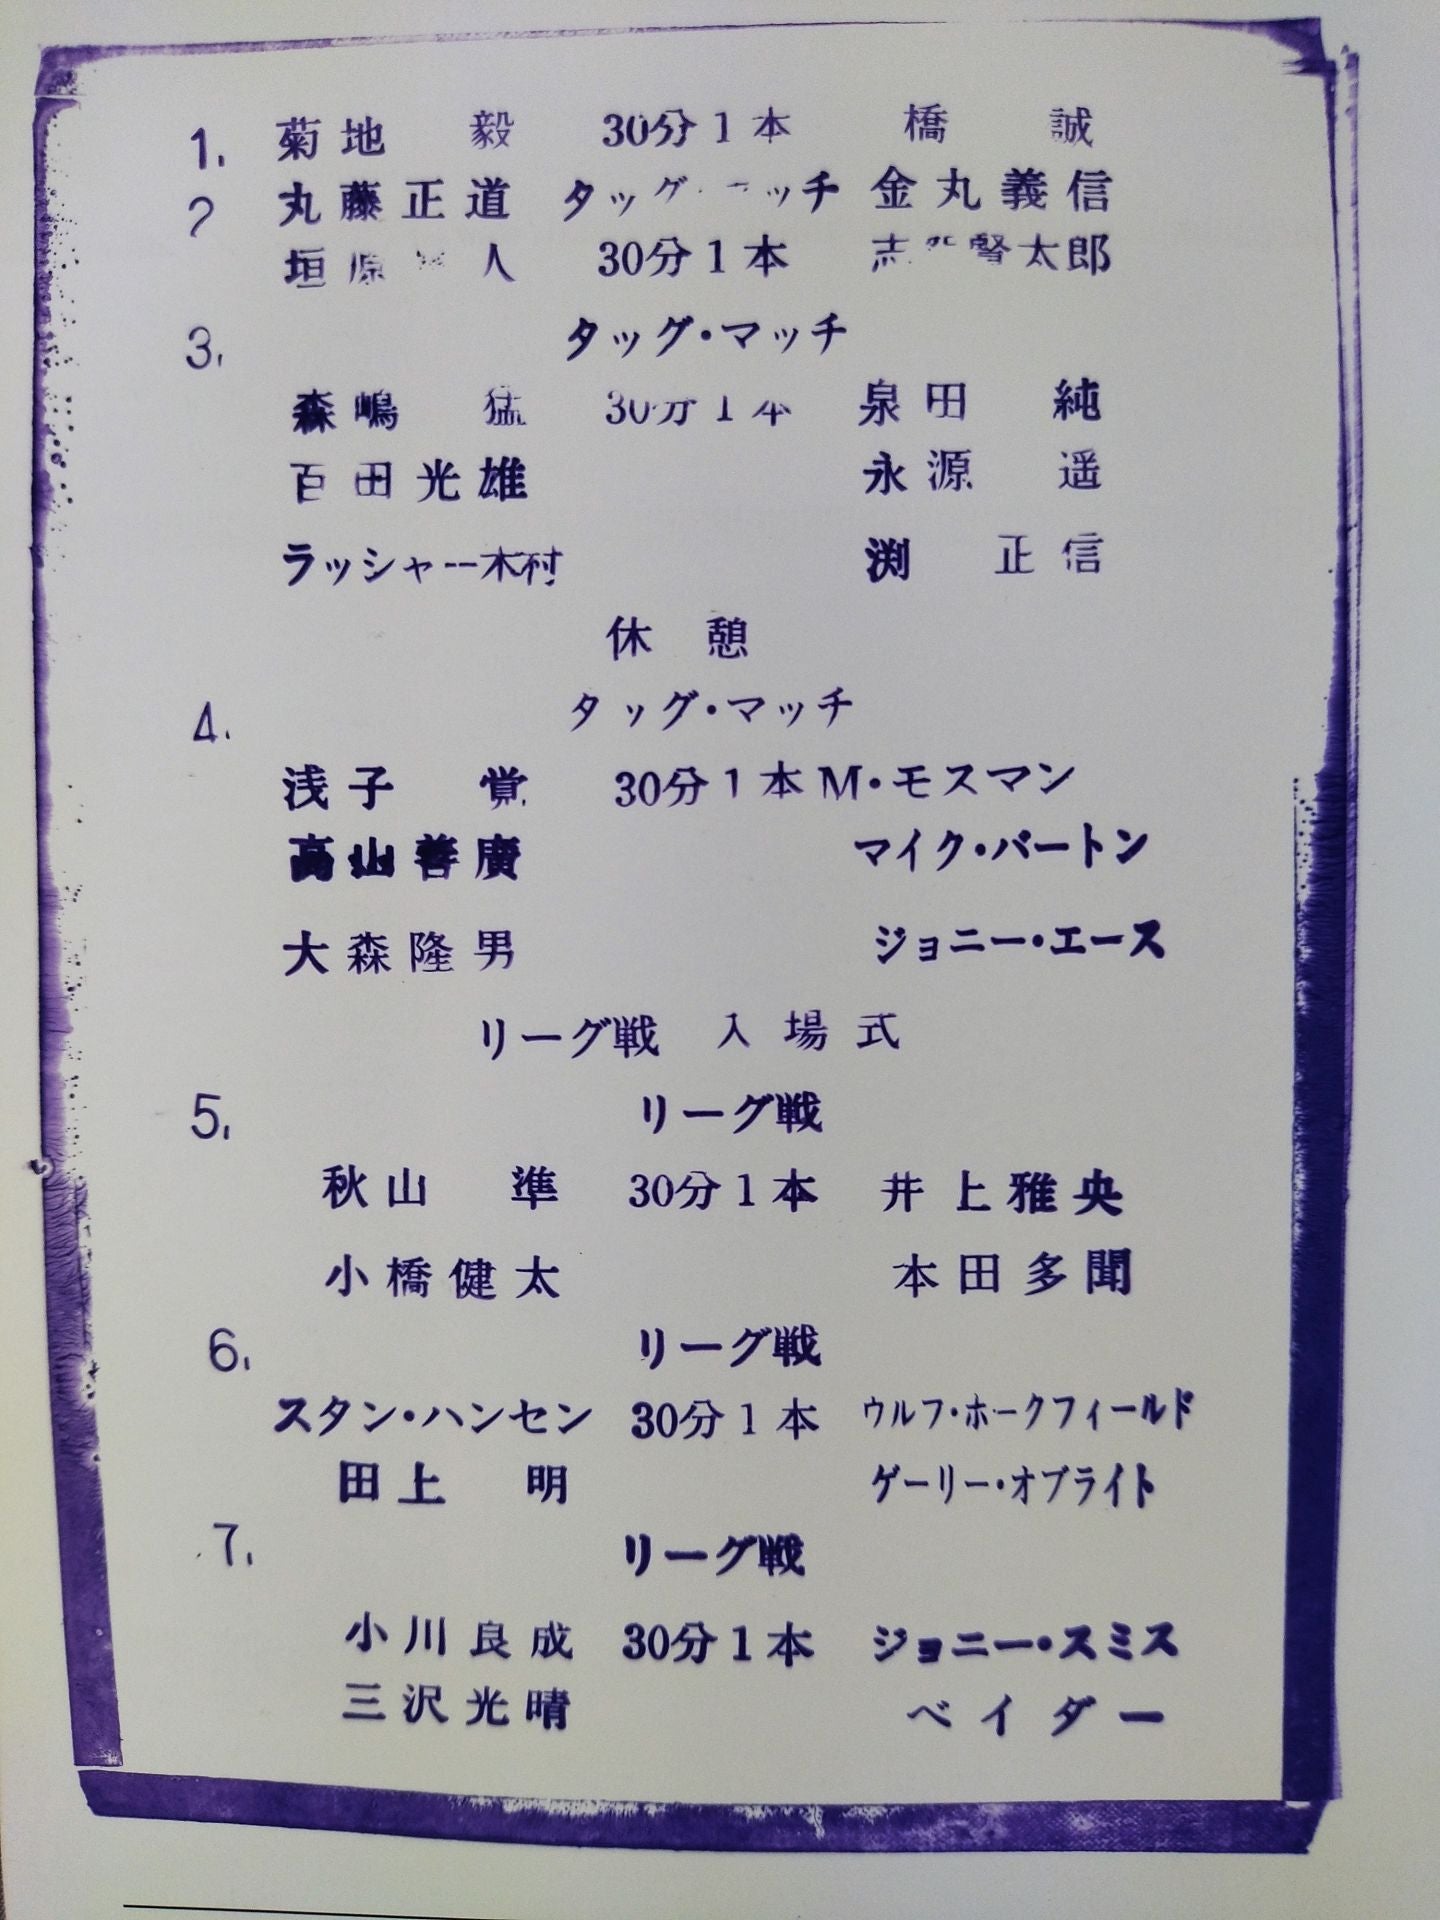 1. 菊地 毅 30分1本 橋 誠
2 丸藤正道 タッグ・マッチ 金丸義信
垣原 人 30分1本 志賀賢太郎
3. タッグ・マッチ
森嶋 猛 30分1本 泉田 純
百田光雄 永源 遥
ラッシャー木村 渕 正信
休憩
4. タッグ・マッチ
浅子 覚 30分1本 M・モスマン
高山善廣 マイク・バートン
大森隆男 ジョニー・エース
リーグ戦 入場式
5. リーグ戦
秋山 準 30分1本 井上雅央
小橋健太 本田多聞
6. リーグ戦
スタン・ハンセン 30分1本 ウルフ・ホークフィールド
田上 明 ゲーリー・オブライト
7. リーグ戦
小川良成 30分1本 ジョニー・スミス
三沢光晴 ベイダー